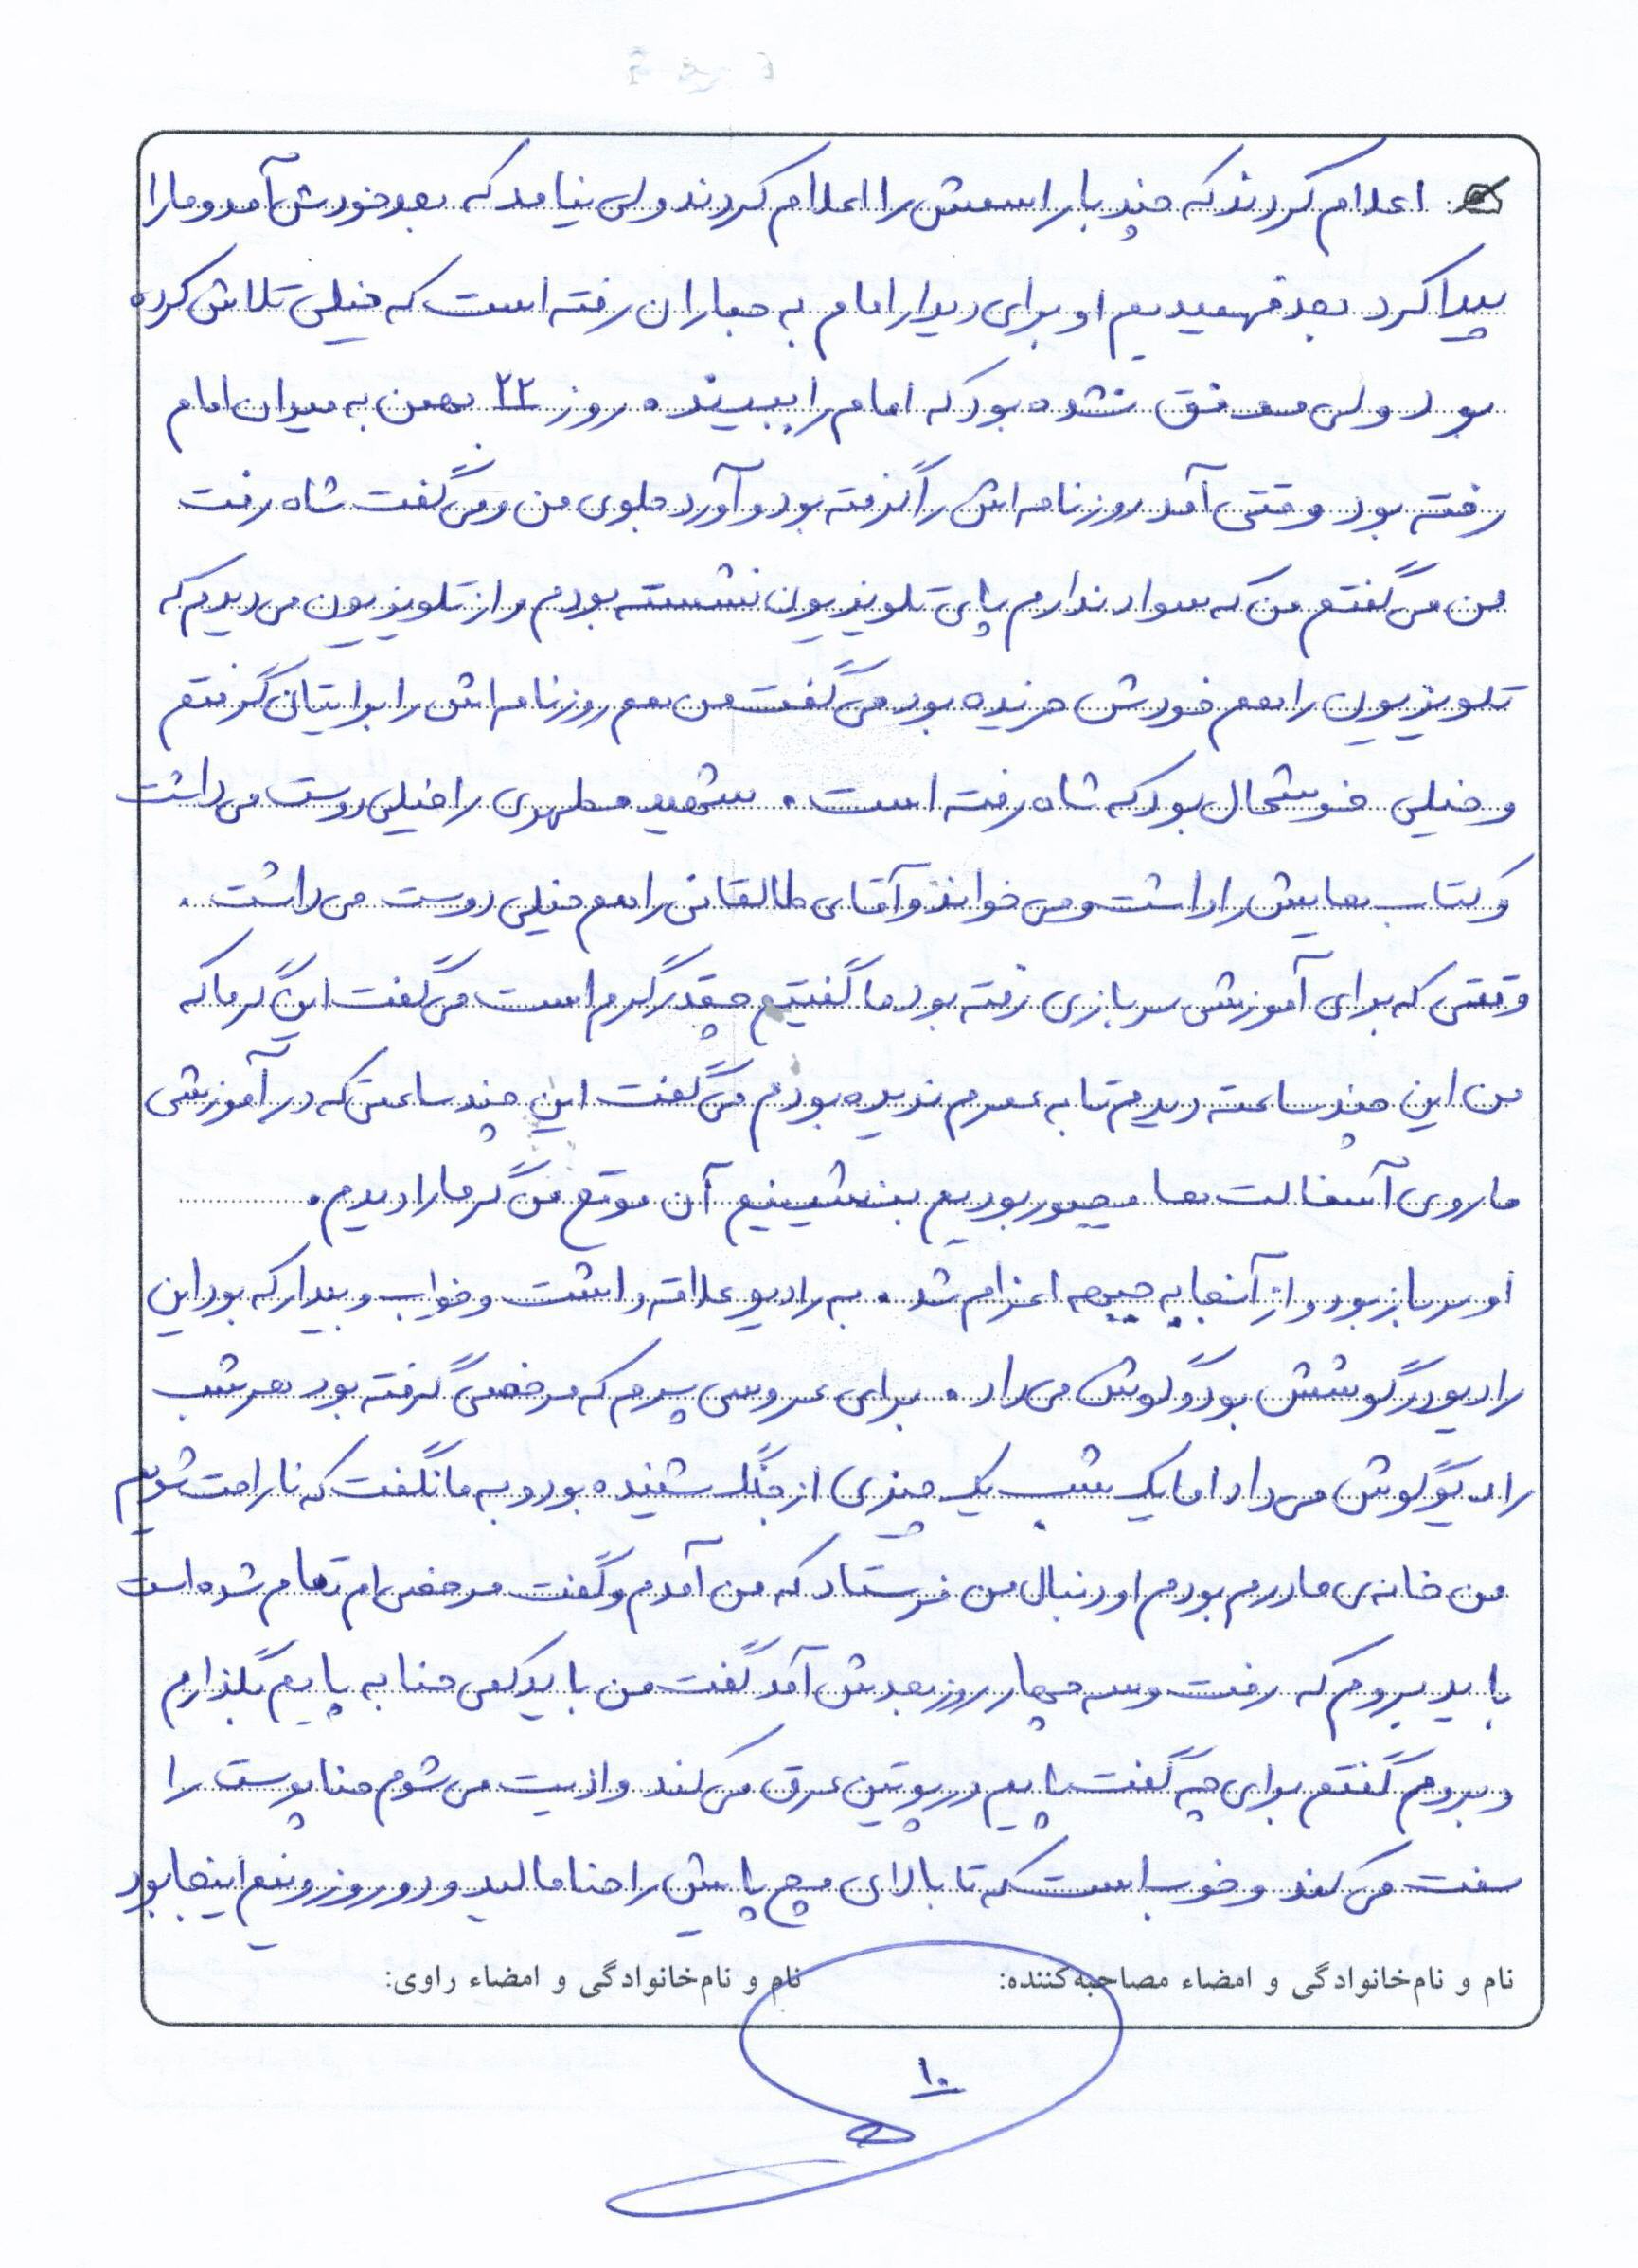 اعلام کردند که چند بار اسمش را اعلام کردند ولی نیامد که بعد خودش آمد و ما را
پیدا کرد بعد فهمیدیم او برای دیدار امام به جماران رفته است که خیلی تلاش کرده
بود ولی موفق نشده بود که امام را ببیند. روز ۲۲ بهمن به میدان امام
رفته بود وقتی آمد روزنامه اش را گرفته بود و آورد جلوی من و می گفت شاه رفت
من می گفتم من که سواد ندارم پای تلویزیون نشسته بودم و از تلویزیون می دیدم که
تلویزیون را هم خودش خریده بود می گفت من هم روزنامه اش را برایتان گرفتم
و خیلی خوشحال بود که شاه رفته است. شهید مطهری را خیلی دوست می داشت
و کتاب هایش را داشت و می خواند و آقای طالقانی را هم خیلی دوست می داشت.
وقتی که برای آموزش سربازی رفته بود ما گفتیم چقدر گرم است می گفت این گرما که
من این چند ساعته دیدم تا به عمرم ندیده بودم می گفت این چند ساعتی که در آموزشی
ما روی آسفالت ها مجبور بودیم بنشینیم آن موقع من گرما را دیدم.
او سرباز بود و از آنجا به جبهه اعزام شد. به رادیو علاقه داشت و خواب و بیدار که بود این
رادیو در گوشش بود و گوش می داد. برای عروسی پسرم که مرخصی گرفته بود هر شب
رادیو گوش می داد اما یک شب یک چیزی از جنگ شنیده بود و به ما نگفت که ناراحت شویم
من خانه ی مادرم بودم او دنبال من فرستاد که من آمدم و گفت مرخصی ام تمام شده است
باید بروم که رفت و سه چهار روز بعدش آمد گفت من باید کمی حنا به پایم بگذارم
و بروم گفتم برای چه گفت پایم در پوتین عرق می کند و اذیت می شوم حنا پوست را
سفت می کند و خوب است که تا بالای مچ پایش را حنا مالید و دو روز و نیم اینجا بود
نام و نام‌خانوادگی و امضاء مصاحبه‌کننده: نام و نام‌خانوادگی و امضاء راوی:
۱۰